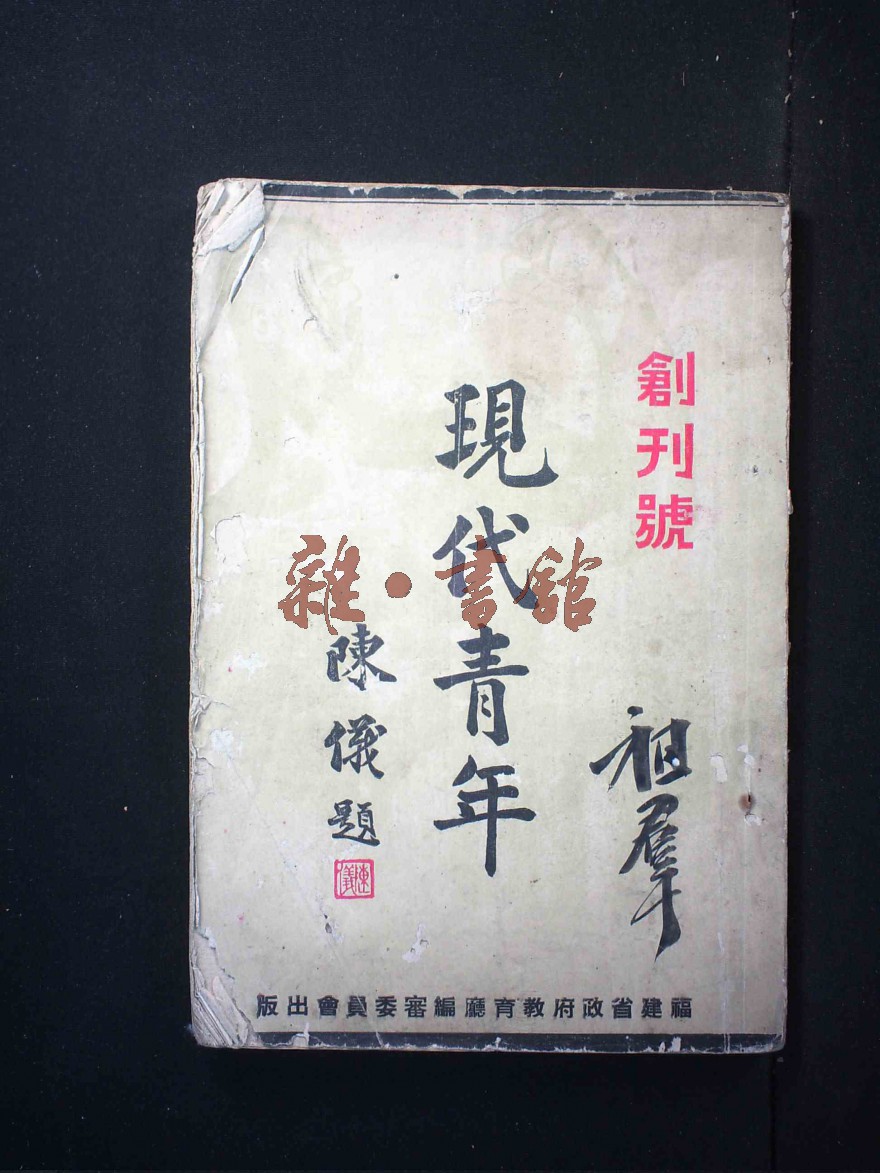 創刊號
祖羣
現代青年
陳儀題
陳儀
福建省政府教育廳編審委員會出版
雜·書館